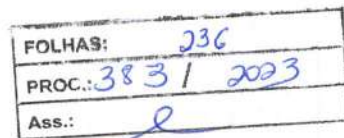 FOLHAS: 236
PROC.: 383 / 2023
Ass.: